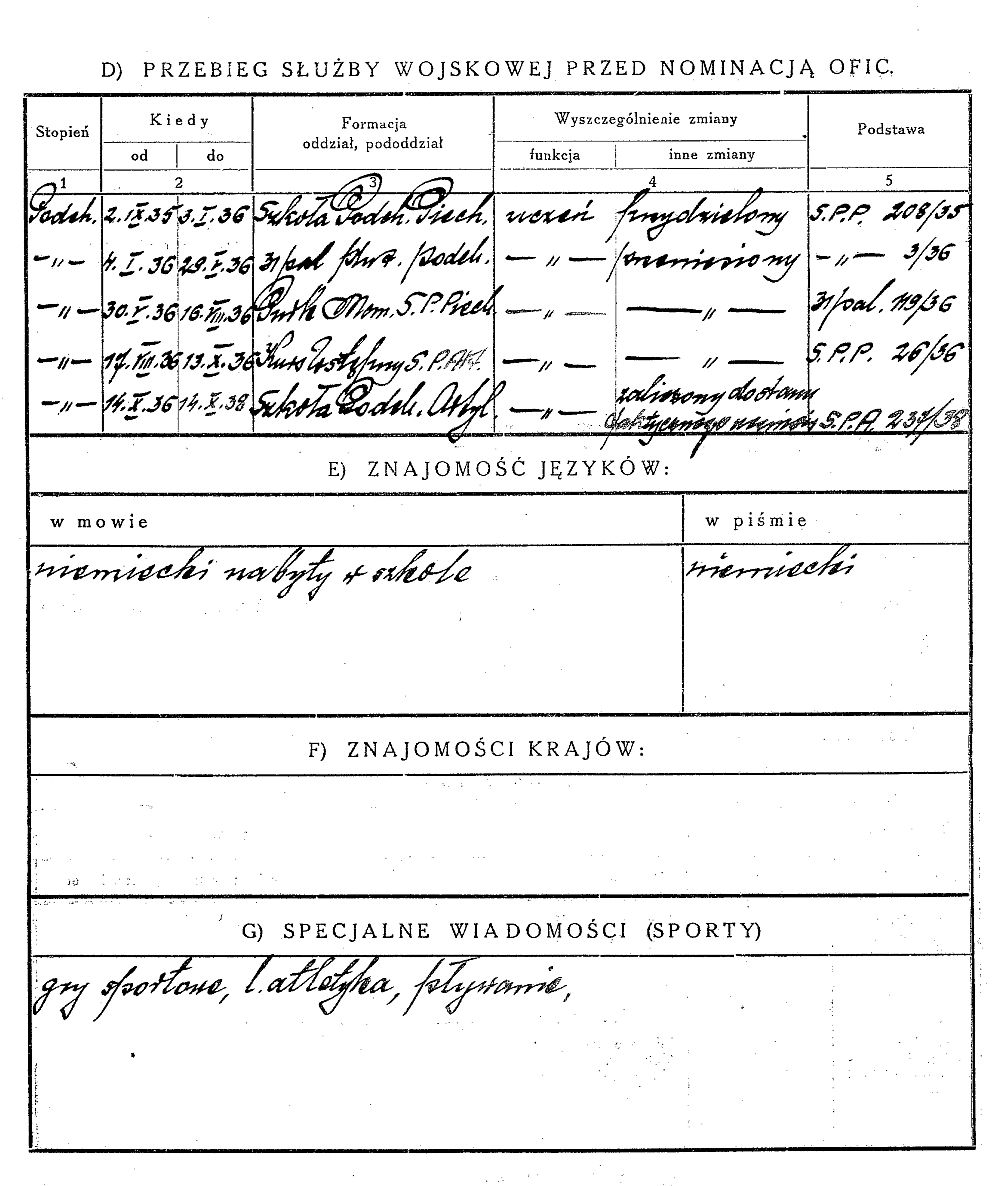 D) PRZEBIEG SŁUŻBY WOJSKOWEJ PRZED NOMINACJĄ OFIC.
Stopień Kiedy Formacja oddział, pododdział Wyszczególnienie zmiany Podstawa
od do funkcja inne zmiany
1 2 3 4 5
Podch. 2.IX.35 3.I.36 Szkoła Podch. Piech. uczeń przydzielony S.P.P. 208/35
—"— 4.I.36 29.V.36 31/pal plut. podch. —"— przeniesiony —"— 3/36
—"— 30.V.36 16.VIII.36 S.P.Piech. —"— —"— 31/pal. 119/36
—"— 17.VIII.36 13.X.36 Kurs Wstępny S.P.Art. —"— —"— S.P.P. 26/36
—"— 14.X.36 14.X.38 Szkoła Podch. Artyl. —"— zaliczony do stanu
faktycznego S.P.A. 237/38
E) ZNAJOMOŚĆ JĘZYKÓW:
w mowie w piśmie
niemiecki nabyty w szkole niemiecki
F) ZNAJOMOŚCI KRAJÓW:
G) SPECJALNE WIADOMOŚCI (SPORTY)
gry sportowe, l. atletyka, pływanie,